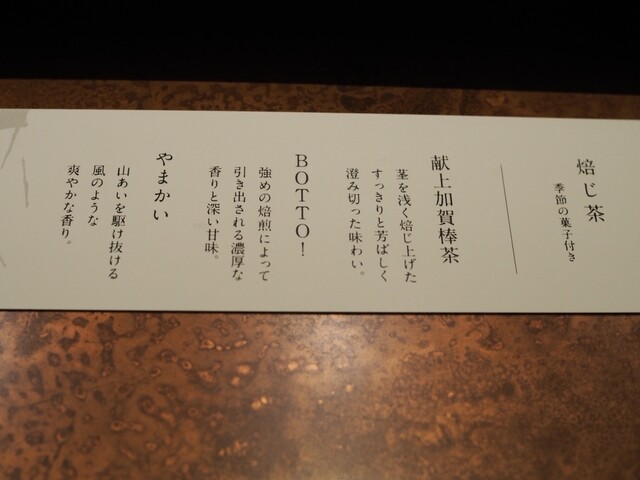 焙じ茶
季節の菓子付き
献上加賀棒茶
茎を浅く焙じ上げた
すっきりと芳ばしく
澄み切った味わい。
BOTTO!
強めの焙煎によって
引き出される濃厚な
香りと深い甘味。
やまかい
山あいを駆け抜ける
風のような
爽やかな香り。